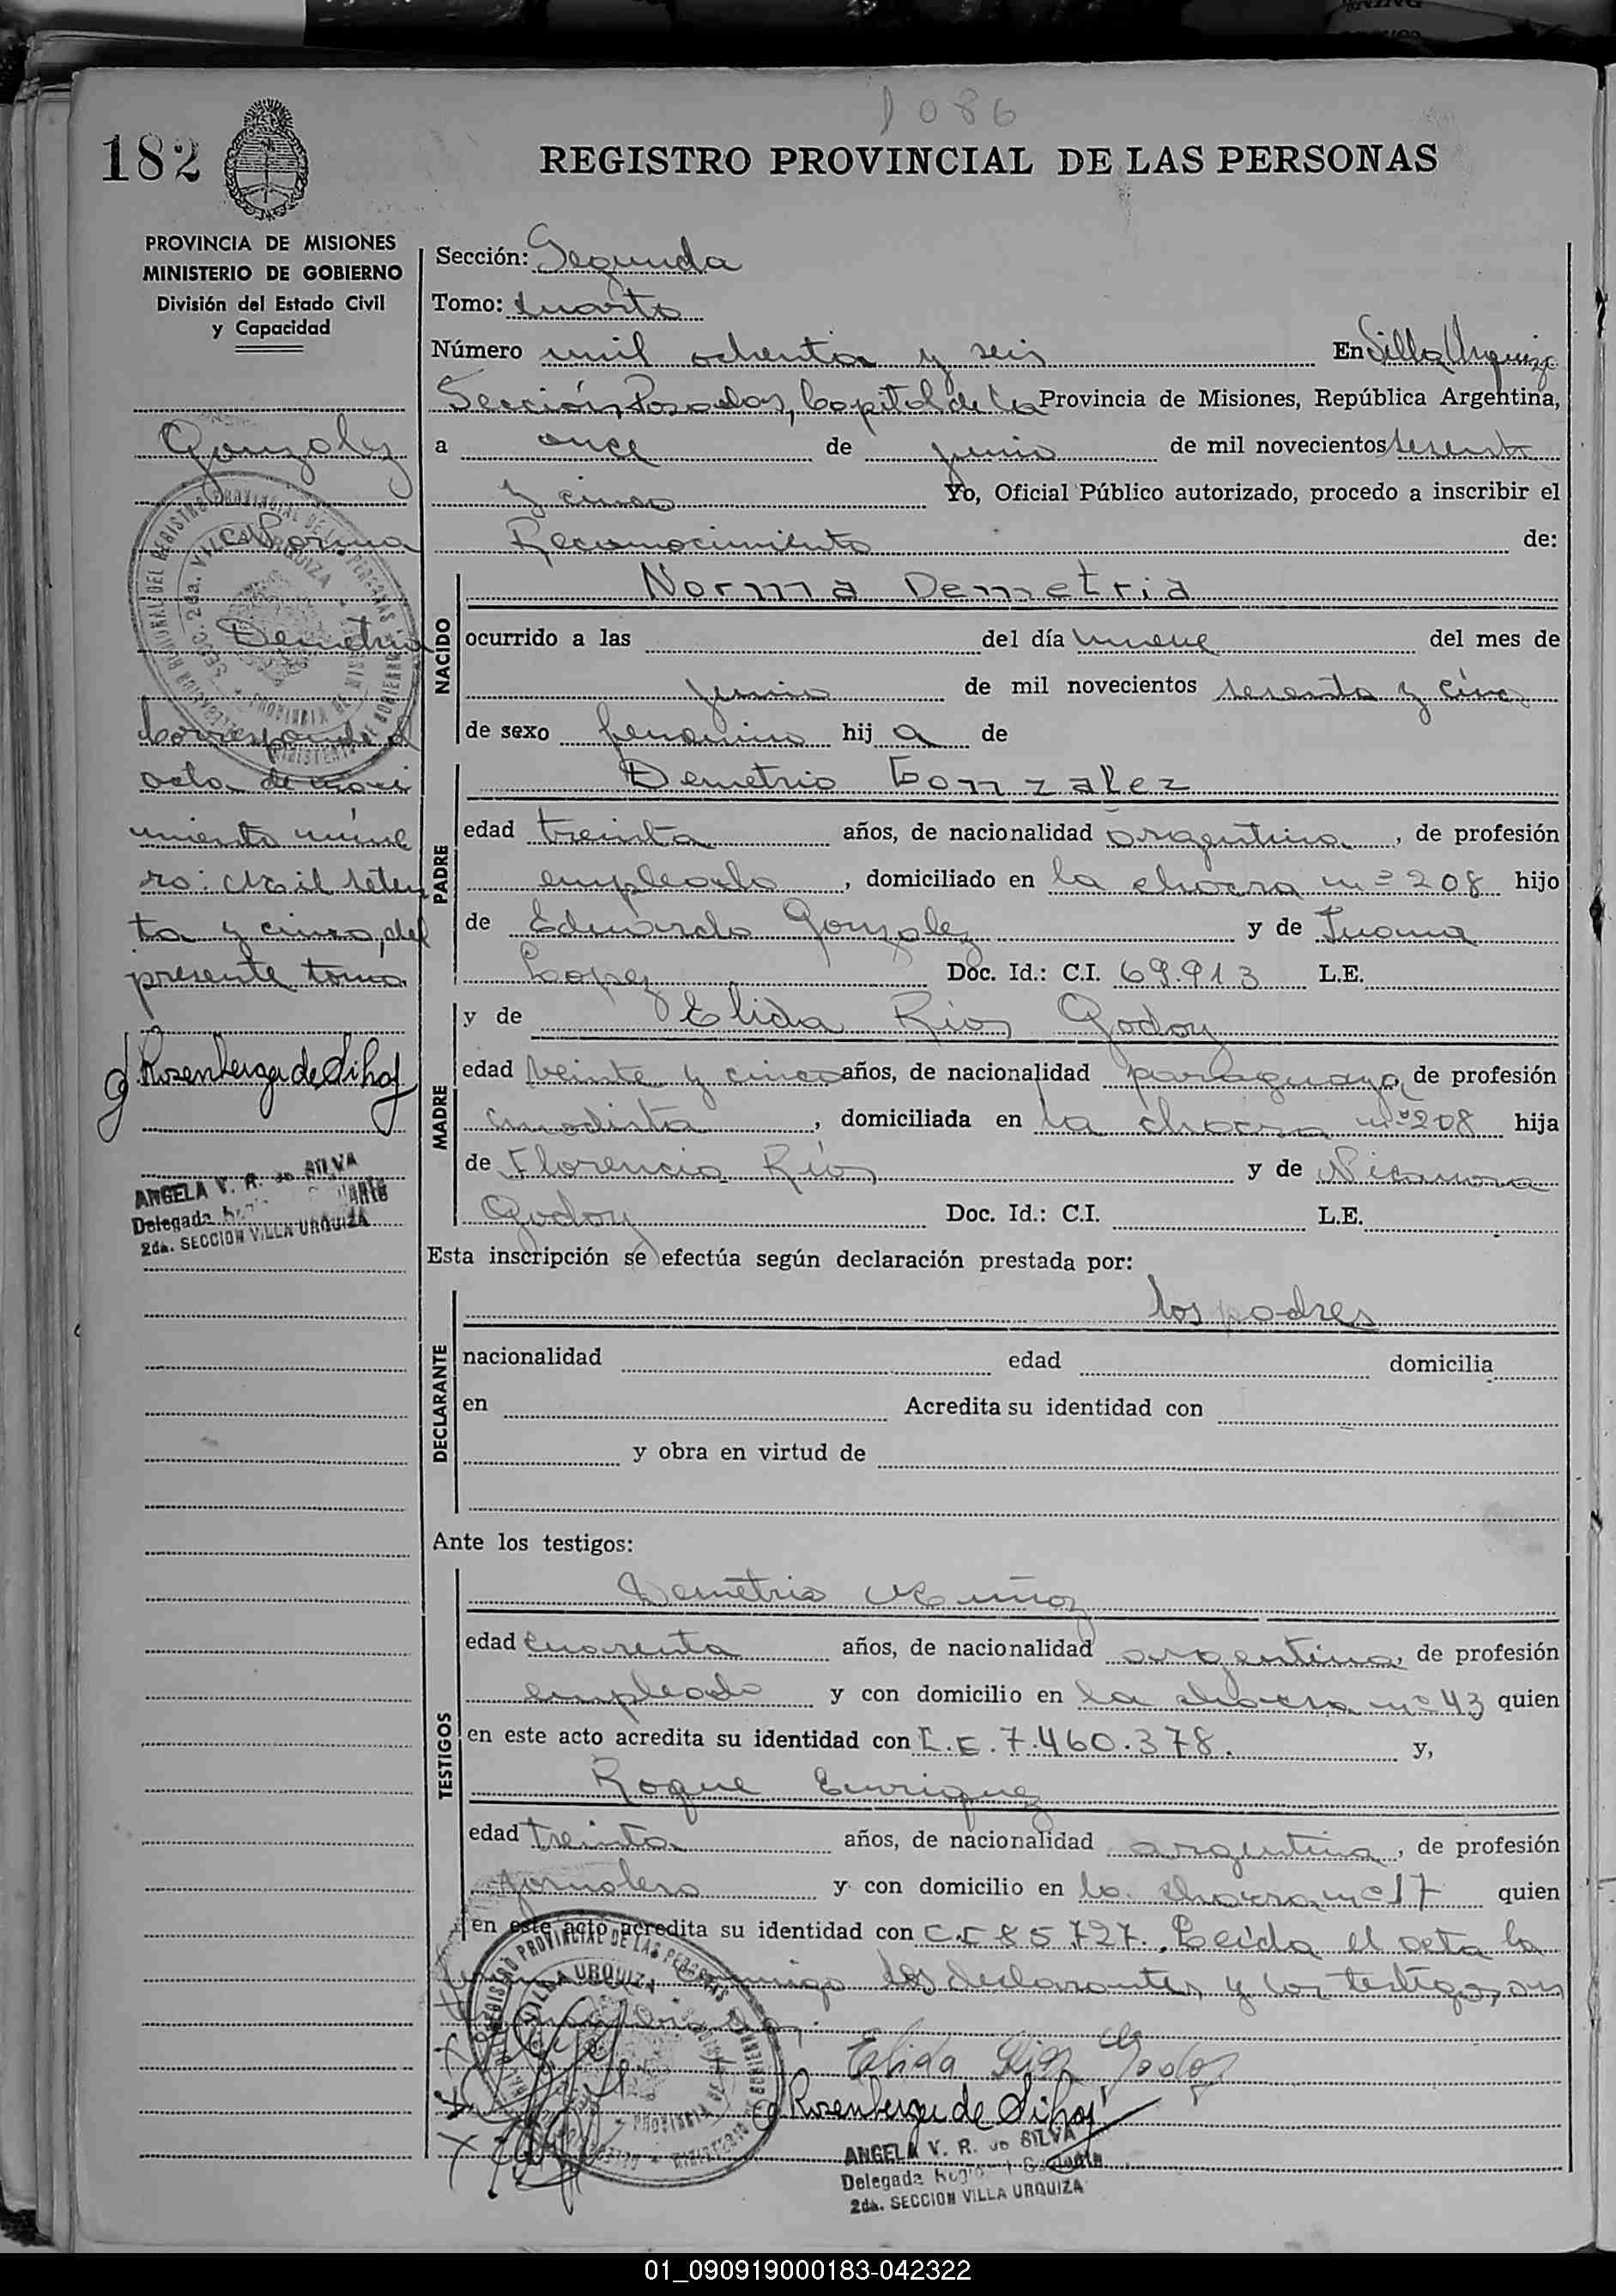 1086
182
REGISTRO PROVINCIAL DE LAS PERSONAS
PROVINCIA DE MISIONES
MINISTERIO DE GOBIERNO
División del Estado Civil
y Capacidad
Gonzalez
Norma
Demetria
Corresponde al
acta de naci
miento núme
ro: Mil seten
ta y cinco, del
presente tomo.
Rosenberger de Silva
ANGELA V. R. de SILVA
Delegada
2da. SECCION VILLA URQUIZA
Sección: Segunda
Tomo: cuarto
Número mil ochenta y seis En Villa Urquiza
Sección, Posadas, Capital de la Provincia de Misiones, República Argentina,
a once de junio de mil novecientos sesenta
y cinco Yo, Oficial Público autorizado, procedo a inscribir el
Reconocimiento de:
NACIDO
Norma Demetria
ocurrido a las del día nueve del mes de
junio de mil novecientos sesenta y cinco
de sexo femenino hij a de
PADRE
Demetrio Gonzalez
edad treinta años, de nacionalidad argentina, de profesión
empleado, domiciliado en la chacra nº 208 hijo
de Eduardo Gonzalez y de Juana
Lopez Doc. Id.: C.I. 69.913 L.E.
MADRE
y de Elida Rios Godoy
edad veinte y cinco años, de nacionalidad paraguaya, de profesión
modista, domiciliada en la chacra nº 208 hija
de Florencio Rios y de Nicanora
Godoy Doc. Id.: C.I. L.E.
Esta inscripción se efectúa según declaración prestada por:
DECLARANTE
los padres
nacionalidad edad domicilia
en Acredita su identidad con
y obra en virtud de
Ante los testigos:
TESTIGOS
Demetrio Muñoz
edad cuarenta años, de nacionalidad argentina, de profesión
empleado y con domicilio en la chacra nº 43 quien
en este acto acredita su identidad con L.E. 7.460.378. y,
Roque Enriquez
edad treinta años, de nacionalidad argentina, de profesión
jornalero y con domicilio en la chacra nº 17 quien
en este acto acredita su identidad con C.I 85.727. Leída el acta la
conmigo los declarantes y los testigos
Elida Rios Godoy
Rosenberger de Silva
ANGELA V. R. de SILVA
Delegada
2da. SECCION VILLA URQUIZA
01_090919000183-042322